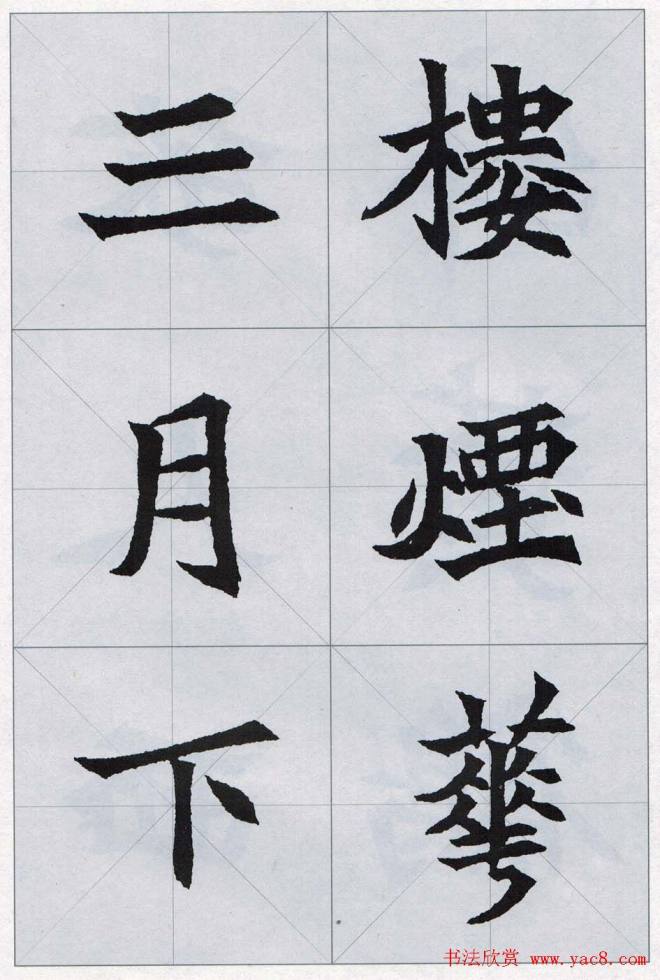 樓煙華
三月下
书法欣赏 www.yac8.com